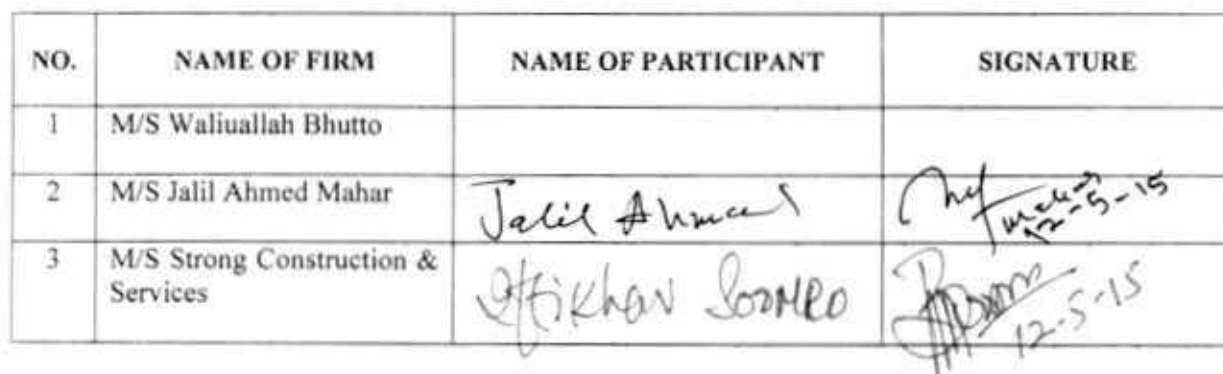 NO. NAME OF FIRM NAME OF PARTICIPANT SIGNATURE
1 M/S Waliuallah Bhutto
2 M/S Jalil Ahmed Mahar Jalil Ahmed
12-5-15
3 M/S Strong Construction &
Services Iftikhar Soomro
12-5-15